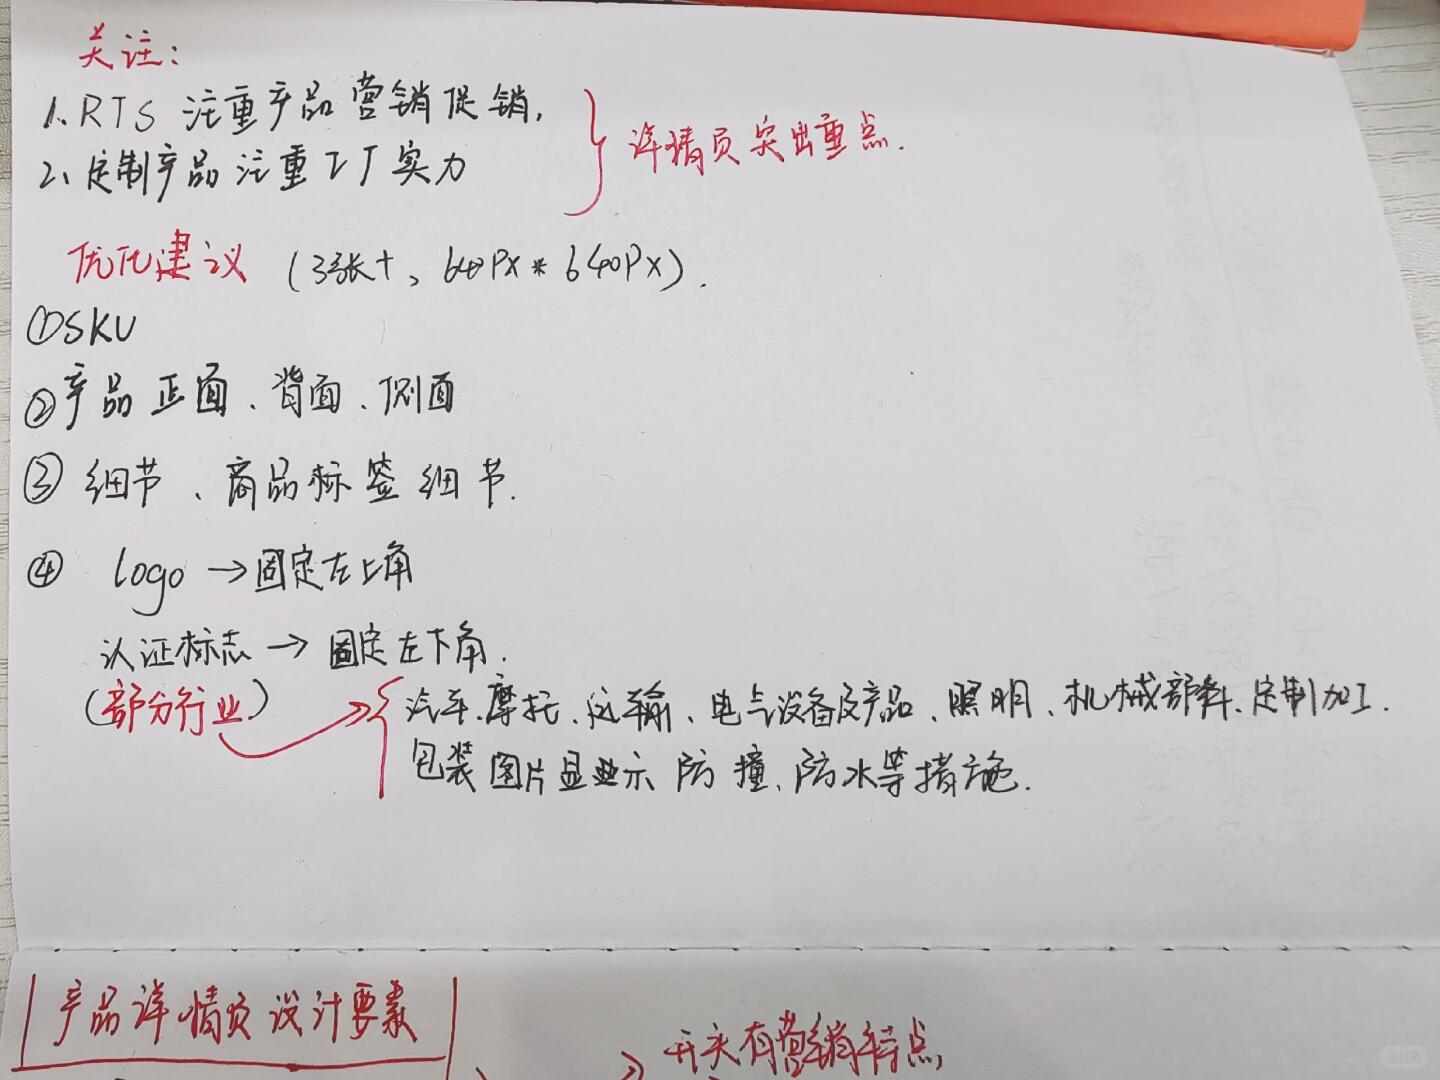 关注：
1、RTS 注重产品营销促销，
2、定制产品注重工厂实力
详情页突出重点.
优化建议 （3张+，640PX*640PX）.
①SKU
②产品正面、背面、侧面
③细节、商品标签细节.
④ logo→固定左上角
认证标志→固定左下角.
（部分行业）
汽车、摩托、运输、电气设备及产品、照明、机械部件、定制加工.
包装图片显示防撞、防水等措施.
产品详情页设计要素
开头有营销特点
小红书